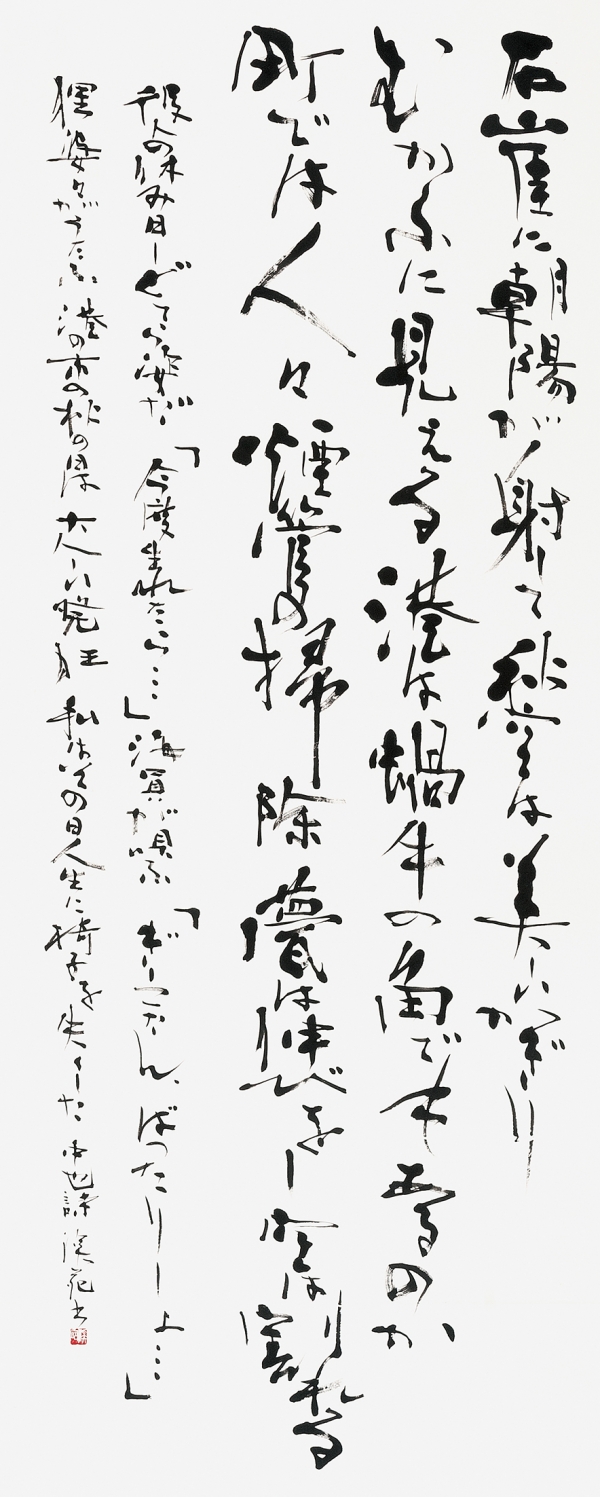 石崖に朝陽が射して秋空は美しいかぎり
むかふに見える港は蝸牛の角でもあるのか
町では人々煙管の掃除甍は伸びをし空は割れる
役人の休み日―どてら姿だ「今度生れたら…」海員が唄ふ「ぎーこたん、ばったりしよ…」
狸婆々がうたふ 港の市の秋の日は 大人しい発狂 私はその日人生に椅子を失くした 中也詩 書